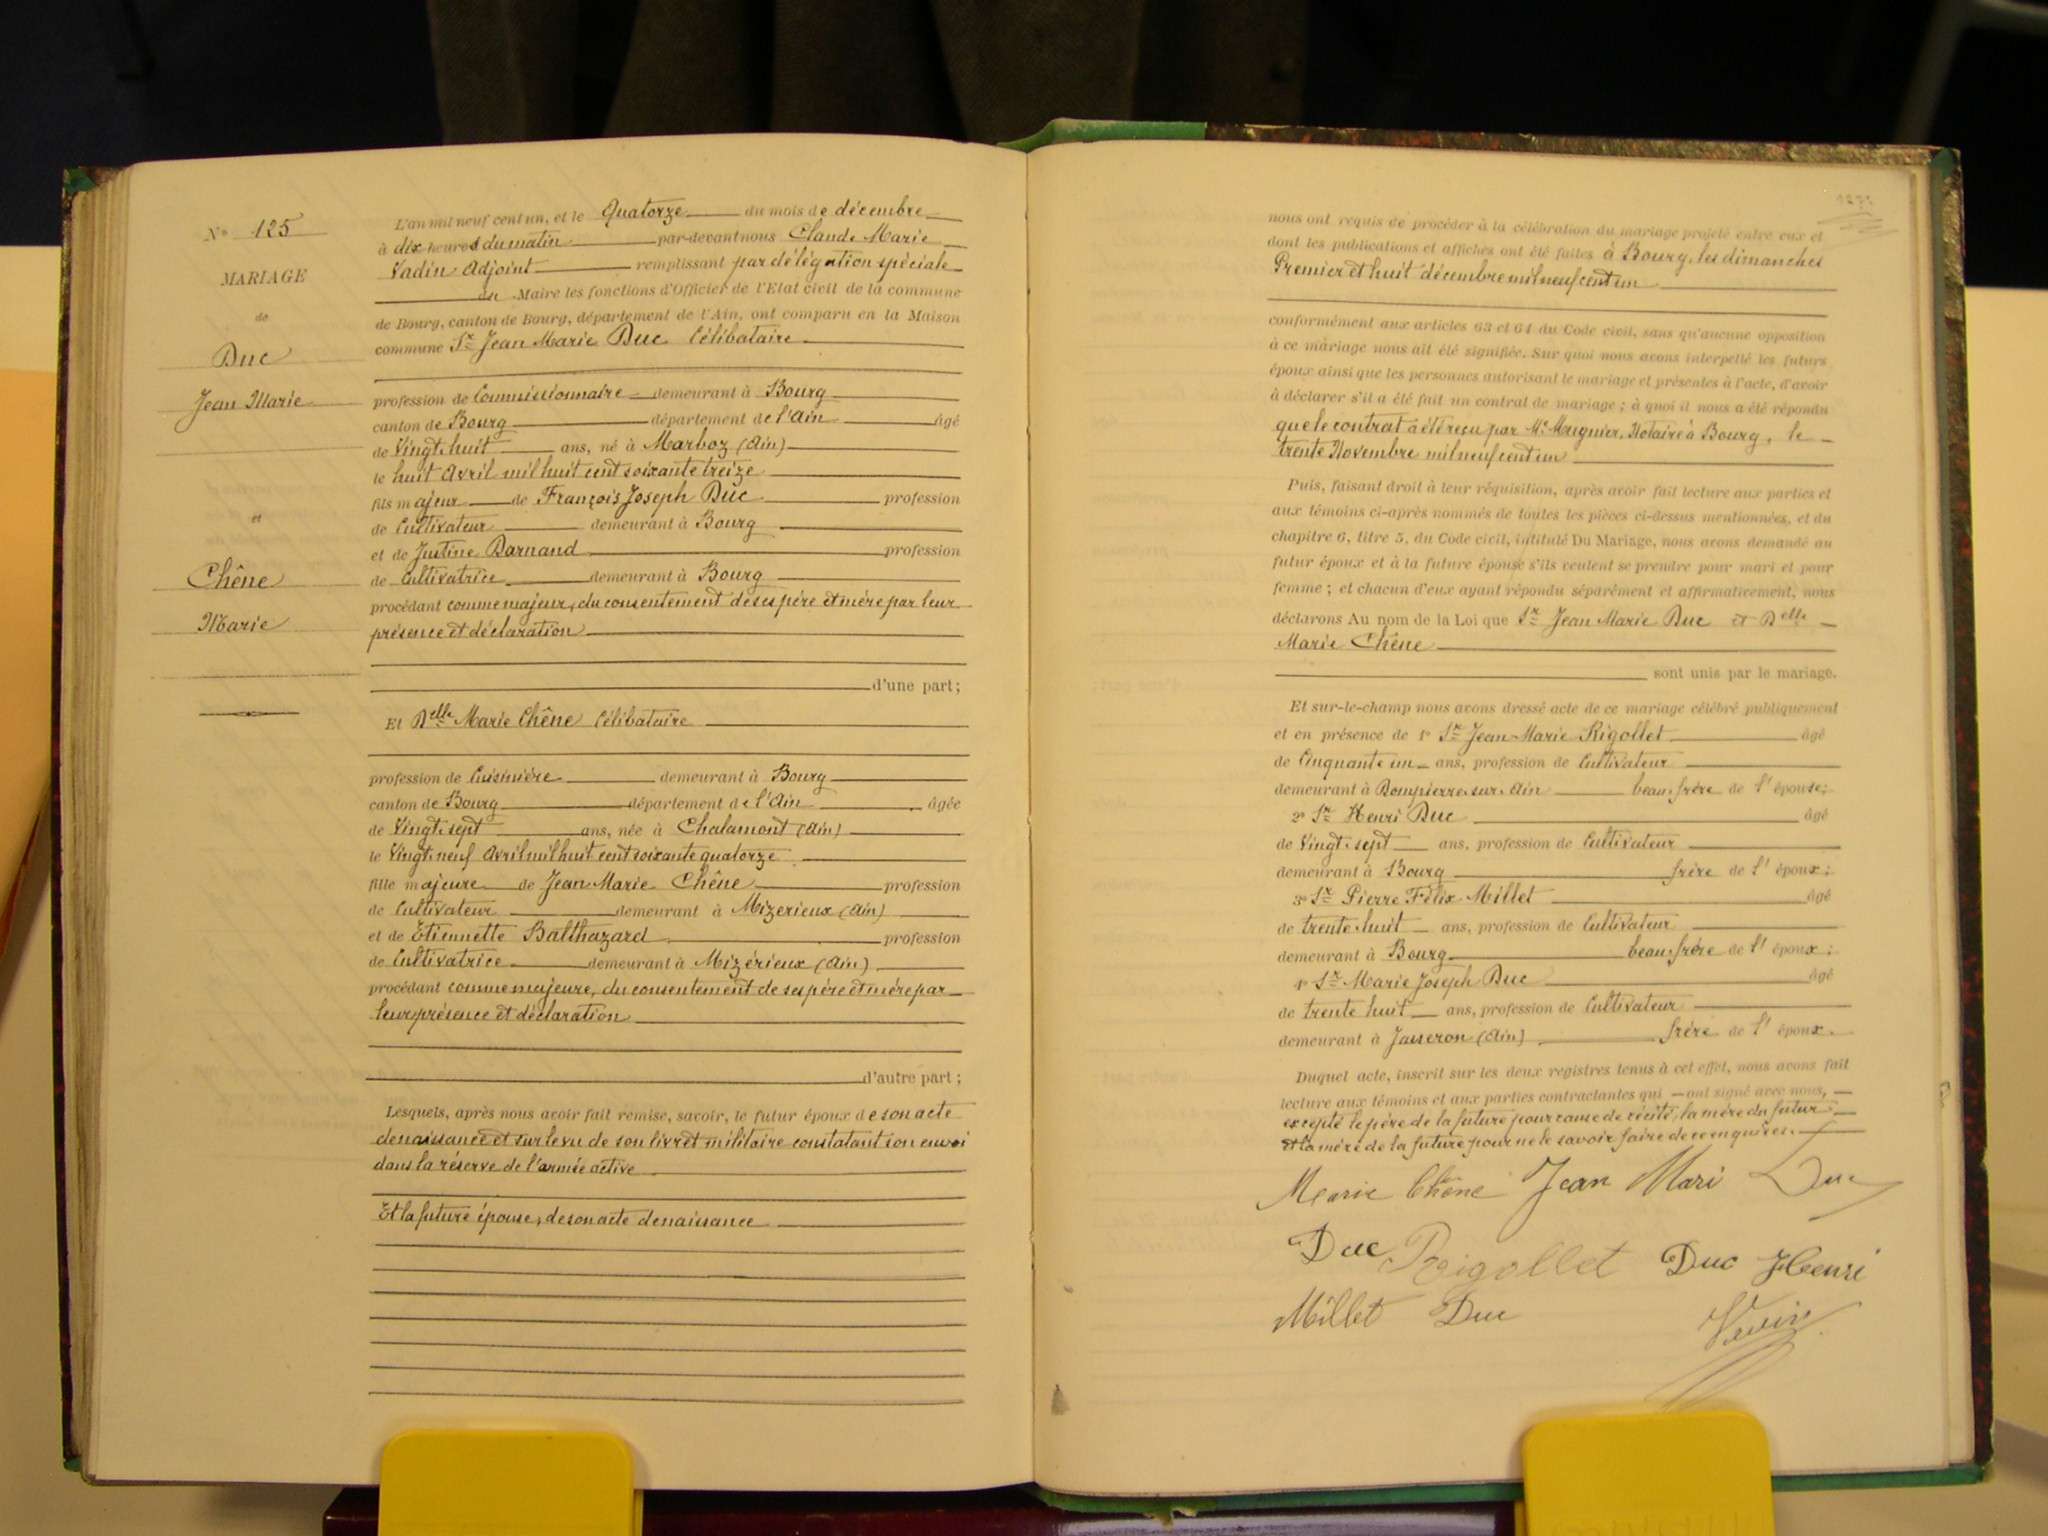 N° 125
MARIAGE
de
Duc
Jean Marie
et
Chêne
Marie
L'an mil neuf cent un, et le Quatorze du mois de décembre
à dix heures du matin par-devant nous Claude Marie
Vadin Adjoint remplissant par délégation spéciale
du Maire les fonctions d'Officier de l'Etat civil de la commune
de Bourg, canton de Bourg, département de l'Ain, ont comparu en la Maison
commune Sr Jean Marie Duc Célibataire
profession de Commissionnaire demeurant à Bourg
canton de Bourg département de l'Ain âgé
de Vingt-huit ans, né à Marboz (Ain)
le huit Avril mil huit cent soixante treize
fils majeur de François Joseph Duc profession
de Cultivateur demeurant à Bourg
et de Justine Darnand profession
de Cultivatrice demeurant à Bourg
procédant comme majeur, du consentement de ses père et mère par leur
présence et déclaration
d'une part;
Et Delle Marie Chêne Célibataire
profession de Cuisinière demeurant à Bourg
canton de Bourg département de l'Ain âgée
de Vingt-sept ans, née à Chalamont (Ain)
le Vingt-neuf Avril mil huit cent soixante quatorze
fille majeure de Jean Marie Chêne profession
de Cultivateur demeurant à Mizerieux (Ain)
et de Etiennette Balthazard profession
de Cultivatrice demeurant à Mizérieux (Ain)
procédant comme majeure, du consentement de ses père et mère par
leur présence et déclaration
d'autre part;
Lesquels, après nous avoir fait remise, savoir, le futur époux de son acte
de naissance et sur le vu de son livret militaire constatant son envoi
dans la réserve de l'armée active
Et la future épouse, de son acte de naissance
nous ont requis de procéder à la célébration du mariage projeté entre eux et
dont les publications et affiches ont été faites à Bourg, les dimanches
Premier et huit décembre mil neuf cent un
conformément aux articles 63 et 64 du Code civil, sans qu'aucune opposition
à ce mariage nous ait été signifiée. Sur quoi nous avons interpellé les futurs
époux ainsi que les personnes autorisant le mariage et présentes à l'acte, d'avoir
à déclarer s'il a été fait un contrat de mariage; à quoi il nous a été répondu
que le contrat à été reçu par Me Mugnier, Notaire à Bourg, le
trente Novembre mil neuf cent un
Puis, faisant droit à leur réquisition, après avoir fait lecture aux parties et
aux témoins ci-après nommés de toutes les pièces ci-dessus mentionnées, et du
chapitre 6, titre 5, du Code civil, intitulé Du Mariage, nous avons demandé au
futur époux et à la future épouse s'ils veulent se prendre pour mari et pour
femme; et chacun d'eux ayant répondu séparément et affirmativement, nous
déclarons Au nom de la Loi que Sr Jean Marie Duc et Delle
Marie Chêne
sont unis par le mariage.
Et sur-le-champ nous avons dressé acte de ce mariage célébré publiquement
et en présence de 1° Sr Jean-Marie Rigollet âgé
de Cinquante un ans, profession de Cultivateur
demeurant à Dompierre-sur-Ain beau-frère de l'épouse;
2° Sr Henri Duc âgé
de Vingt-sept ans, profession de Cultivateur
demeurant à Bourg frère de l'époux;
3° Sr Pierre Félix Millet âgé
de trente-huit ans, profession de Cultivateur
demeurant à Bourg beau-frère de l'époux;
4° Sr Marie Joseph Duc âgé
de trente huit ans, profession de Cultivateur
demeurant à Jasseron (Ain) frère de l'époux.
Duquel acte, inscrit sur les deux registres tenus à cet effet, nous avons fait
lecture aux témoins et aux parties contractantes qui ont signé avec nous,
excepté le père de la future pour cause de cécité, la mère du futur
et la mère de la future pour ne le savoir faire de ce enquises.
Marie Chêne Jean Mari Duc
Duc Rigollet Duc Henri
Millet Duc